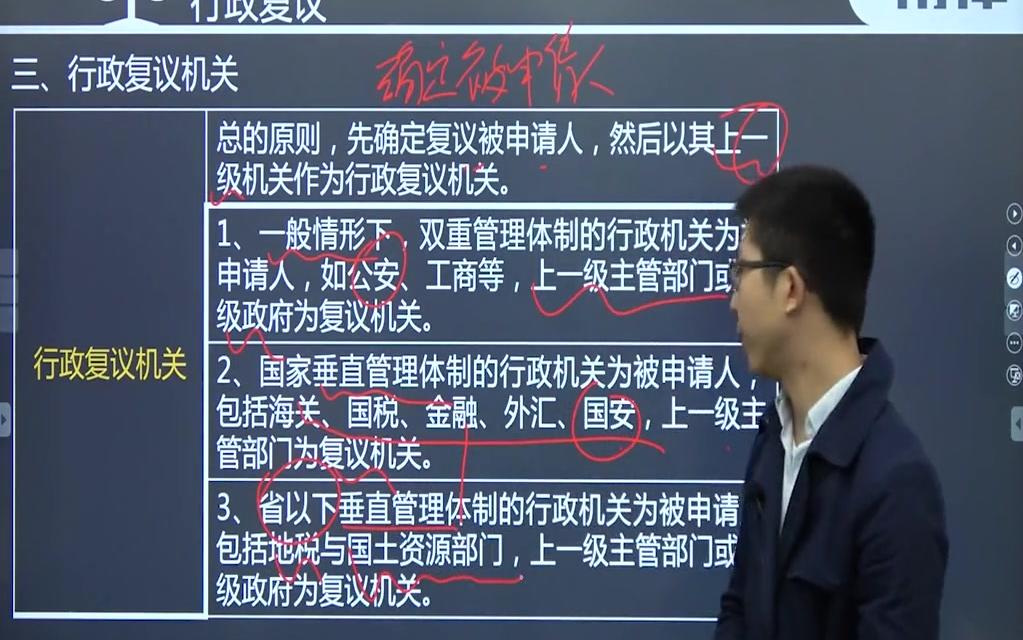 行政复议
三、行政复议机关
确定被申请人
总的原则，先确定复议被申请人，然后以其上一
级机关作为行政复议机关。
1、一般情形下，双重管理体制的行政机关为
申请人，如公安、工商等，上一级主管部门或
级政府为复议机关。
行政复议机关
2、国家垂直管理体制的行政机关为被申请人，
包括海关、国税、金融、外汇、国安，上一级主
管部门为复议机关。
3、省以下垂直管理体制的行政机关为被申请
包括地税与国土资源部门，上一级主管部门或
级政府为复议机关。